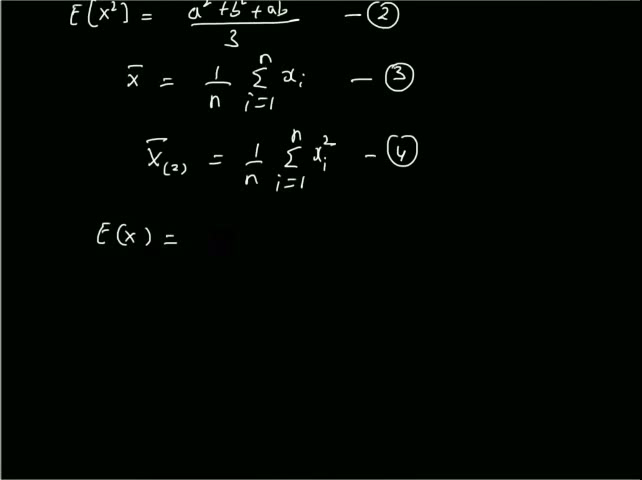 E[x²] = (a² + b² + ab)/3 — ②
x̄ = 1/n Σᵢ₌₁ⁿ xᵢ — ③
X̄₍₂₎ = 1/n Σᵢ₌₁ⁿ xᵢ² — ④
E(x) =